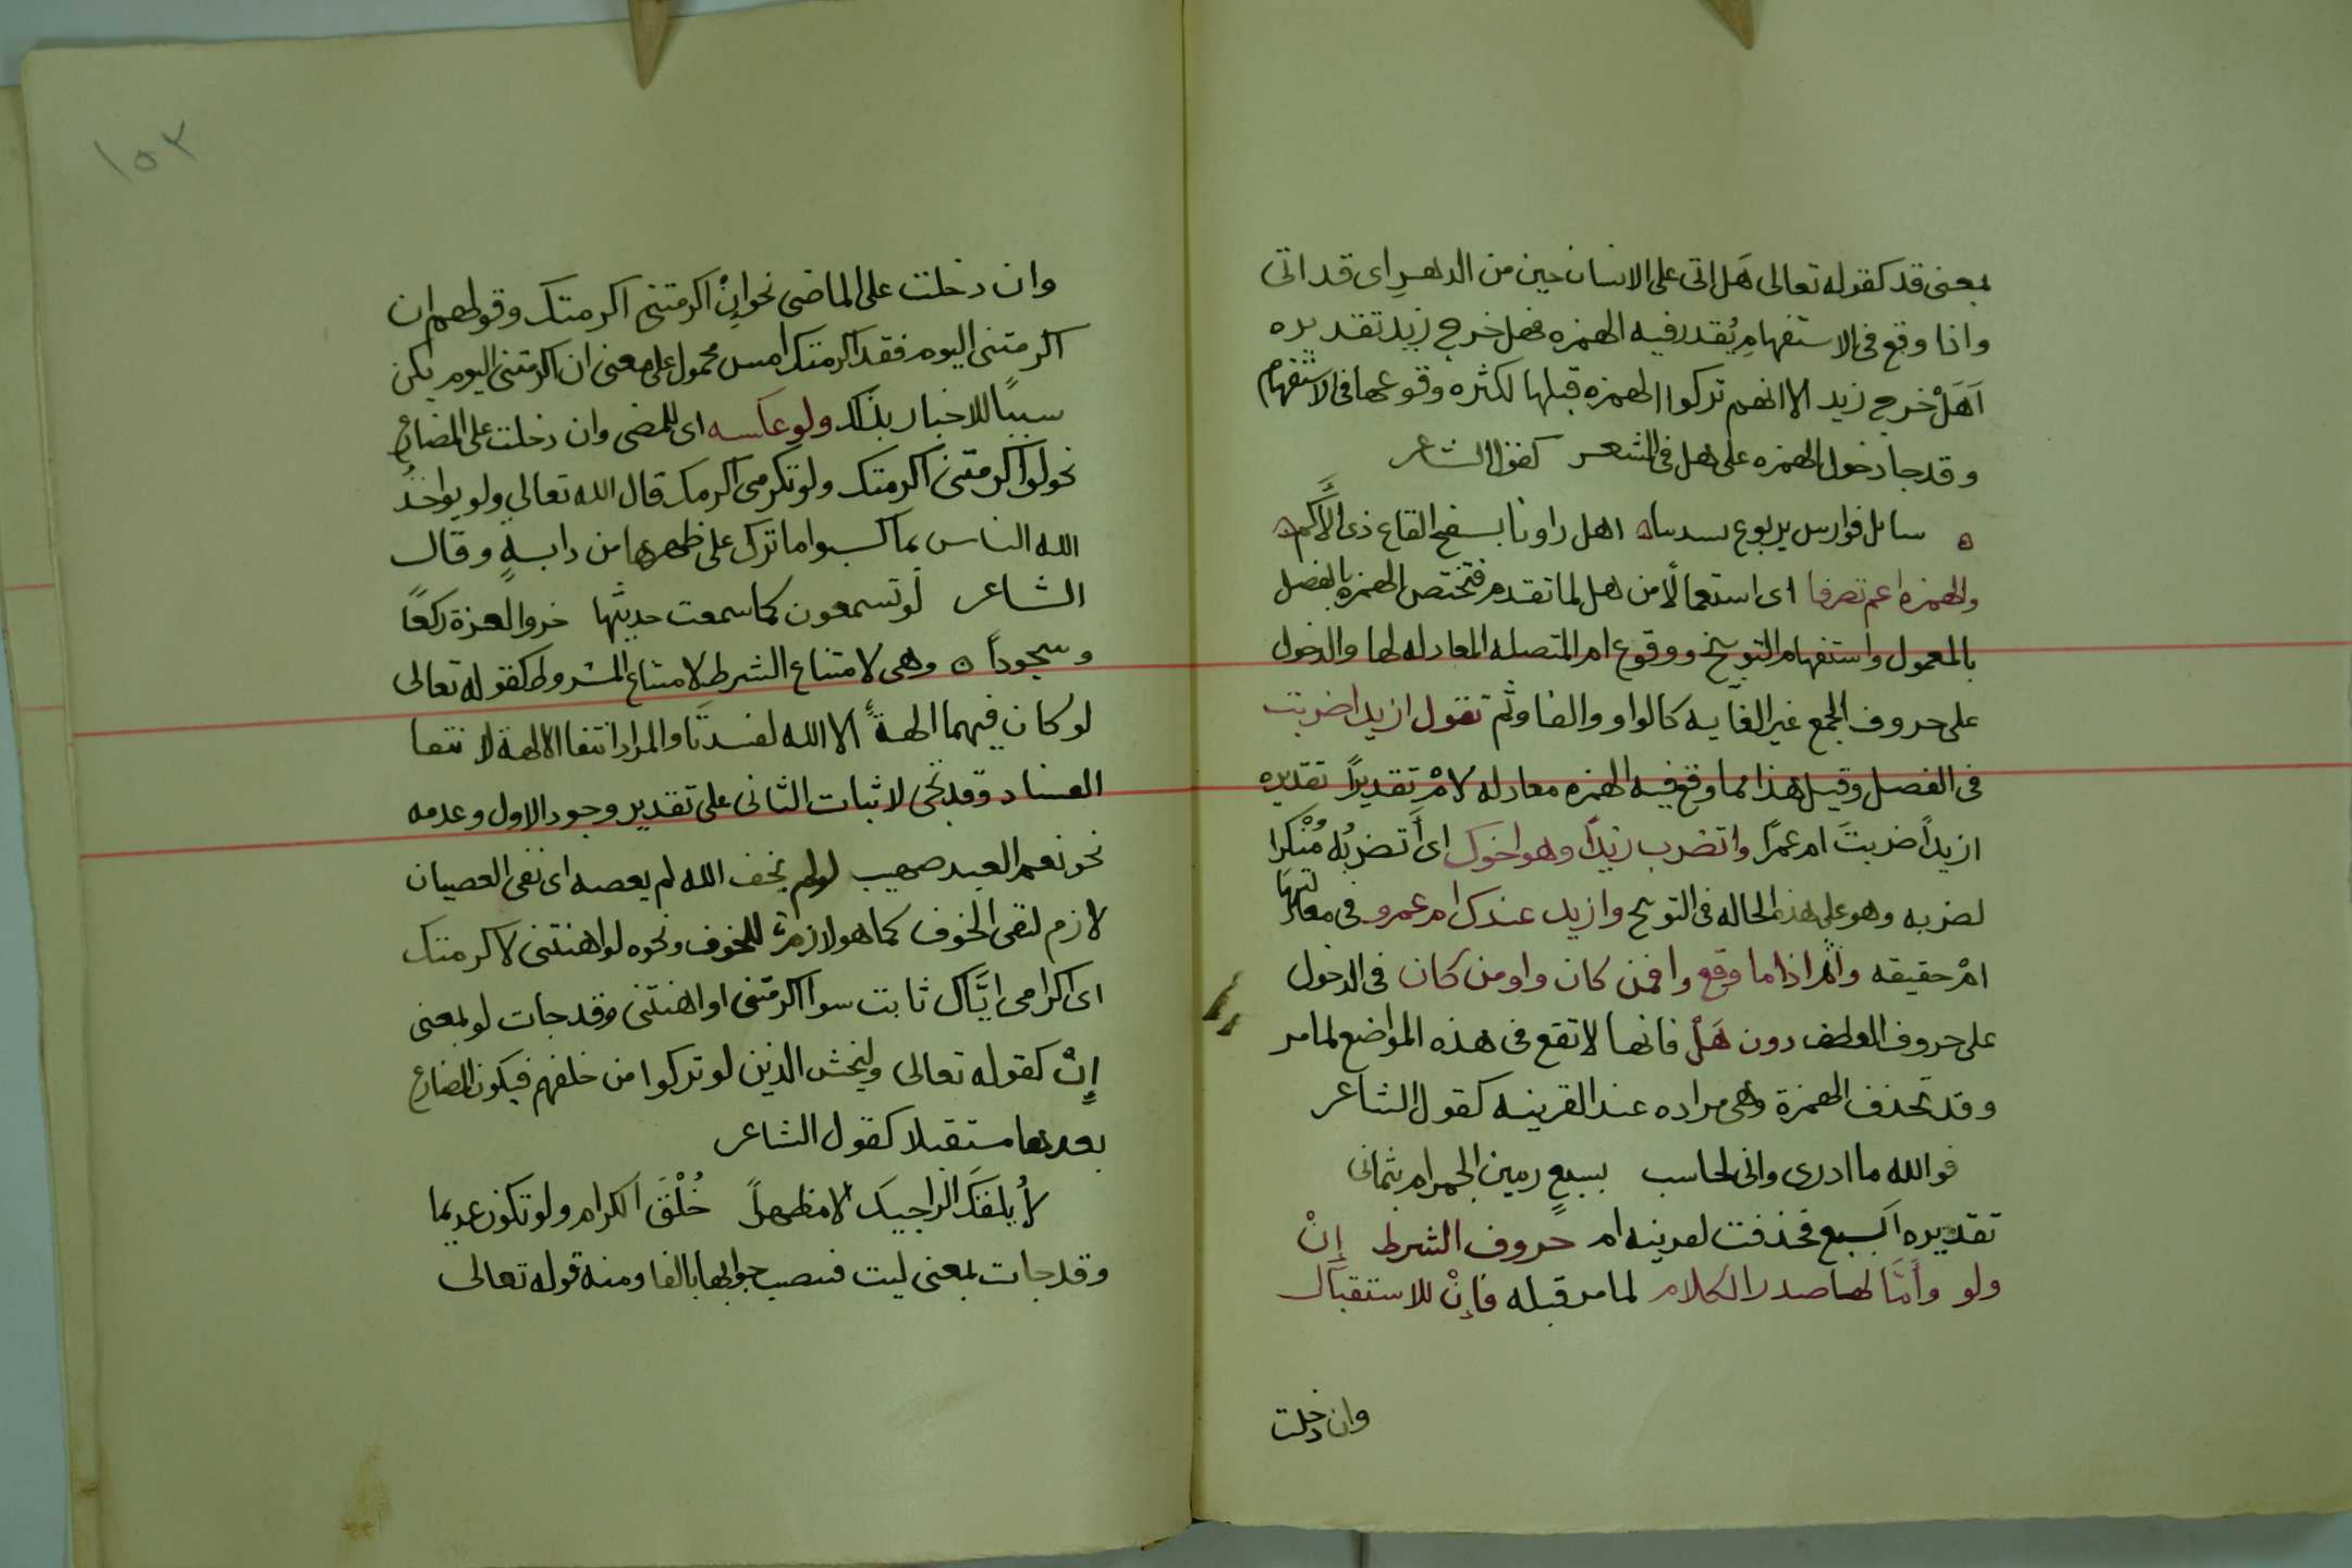 بمعنى قد كقوله تعالى هَل اتى على الانسان حين من الدهرِ اى قد اتى
واذا وقع فى الاستفهامِ يُقدر فيه الهمزه فهل خرج زيد تقديره
اَهَلْ خرج زيد الا انهم تركوا الهمزه قبلها لكثره وقوعها فى الاستفهام
وقد جا دخول الهمزه على هل فى الشعر كقول الشاعر
سايل فوارس يربوع بسدساه اهل راونا بسفح القاع ذى الاَكم
والهمزه اعم تصرفا اى استعمالًا من هل لما تقدم فتختص الهمزه بالفصل
بالمعمول واستفهام التوبيخ ووقوع ام المتصله المعادله لها والدخول
على حروف الجمع غير الغايه كالواو والفا وثم تقول ازيدا ضربت
فى الفصل وقيل هذا مما وقع فيه الهمزه معادله لامْ تقديرًا تقديره
ازيدًا ضربتَ ام عمرًا واتضرب زيدًا وهو اخوك اى أَتضربُه مُنْكرا
لضربه وهو على هذه الحاله فى التوبيخ وازيد عندك ام عمرو فى معادلتها
امْ حقيقه واثم اذا ما وقع وافمن كان واومن كان فى الدخول
على حروف العطف دون هَلْ فانها لا تقع فى هذه المواضع لما مر
وقد تحذف الهمزة وهى مراده عند القرينه كقول الشاعر
فوالله ما ادرى وانى لحاسب بسبعٍ رمين الجمر ام بثمانى
تقديره ابسبع فحذفت لقرينه ام حروف الشرط إنْ
ولو وأمَّا لها صدر الكلام لما مر قبله فإنْ للاستقبال
وان دخلت
١٥٢
وان دخلت على الماضى نحو إنْ اكرمتنى اكرمتك وقولهم ان
اكرمتنى اليوم فقد اكرمتك امس محمول على معنى ان اكرمتنى اليوم يكن
سببًا للاخبار بذلك ولو عكسه اى للمضى وان دخلت على المضارع
نحو لو اكرمتنى اكرمتك ولو تكرمنى اكرمك قال الله تعالى ولو يواخذُ
الله الناس بما كسبوا ما ترك على ظهرها من دابةٍ وقال
الشاعر لو تسمعون كما سمعت حديثها خروا لعزة ركعًا
وسجوداً وهى لامتناع الشرط لامتناع المشروط كقوله تعالى
لو كان فيهما الهةٌ الا الله لفسدتَا والمراد انتفا الالهة لانتفا
الفساد وقد تجى لاثبات الثانى على تقدير وجود الاول وعدمه
نحو نعم العبد صهيب لو لم يخف الله لم يعصه اى نفى العصيان
لازم لنفى الخوف كما هو لازم للخوف ونحوه لو اهنتنى لاكرمتك
اى اكرامى ايَّاك ثابت سوا اكرمتنى او اهنتنى وقد جات لو بمعنى
إنْ كقوله تعالى وليخش الذين لو تركوا من خلفهم فيكون المضارع
بعدها مستقبلا كقول الشاعر
لأيلفك الراجيك الا مظهرًا خُلْقَ الكرام ولو تكون عديما
وقد جات بمعنى ليت فنصب جوابها بالفا ومنه قوله تعالى